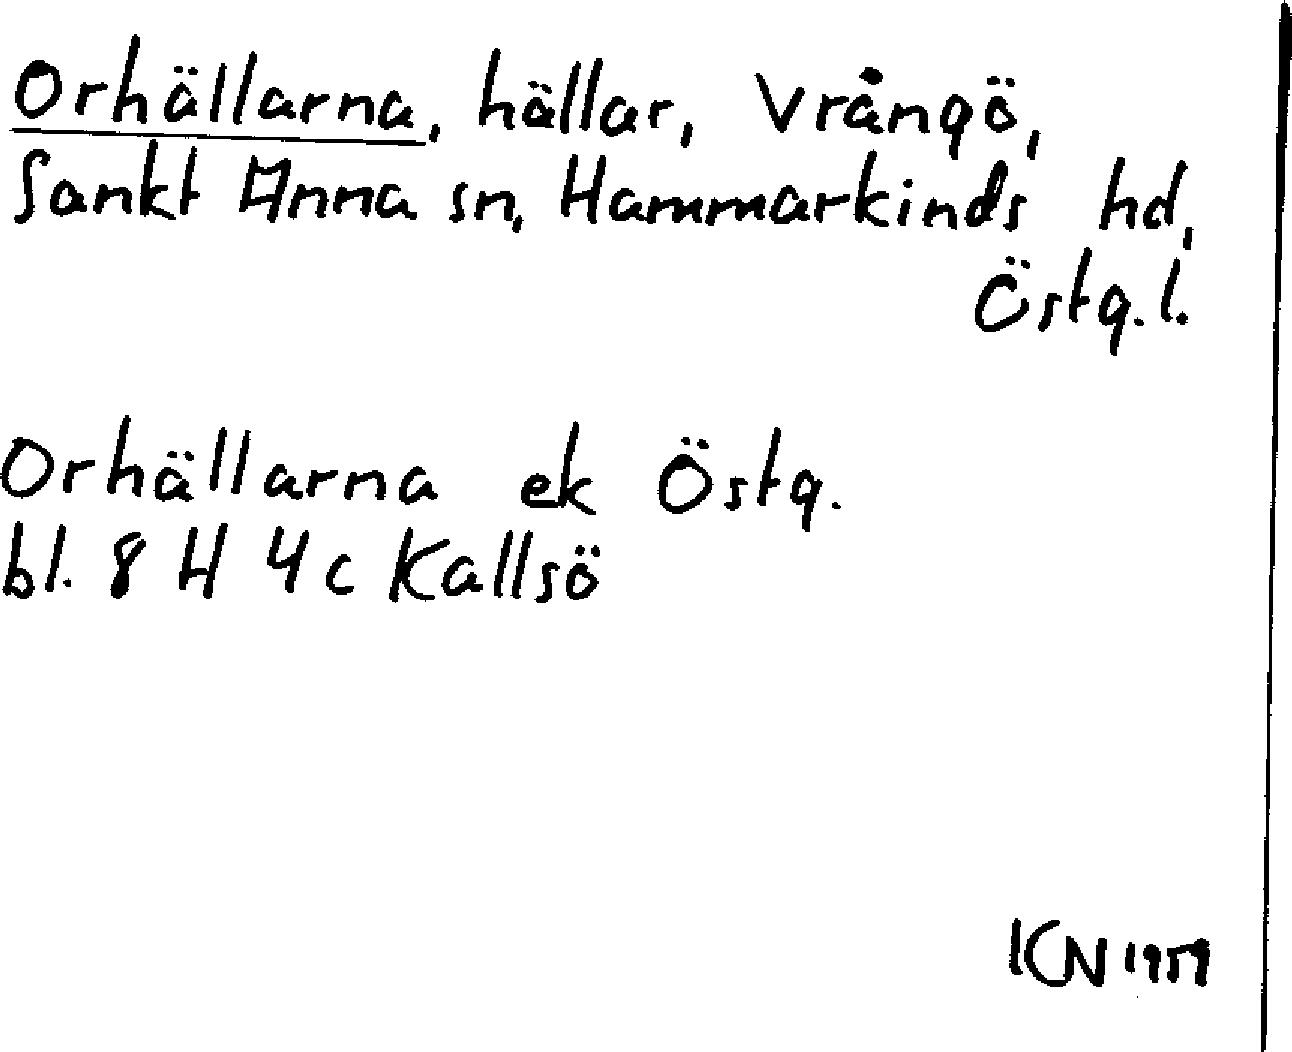 Orhällarna, hällar, Vrångö,
Sankt Anna sn, Hammarkinds hd,
Östg.l.
Orhällarna ek Östg.
bl. 8 H 4c Kallsö
KN 1959